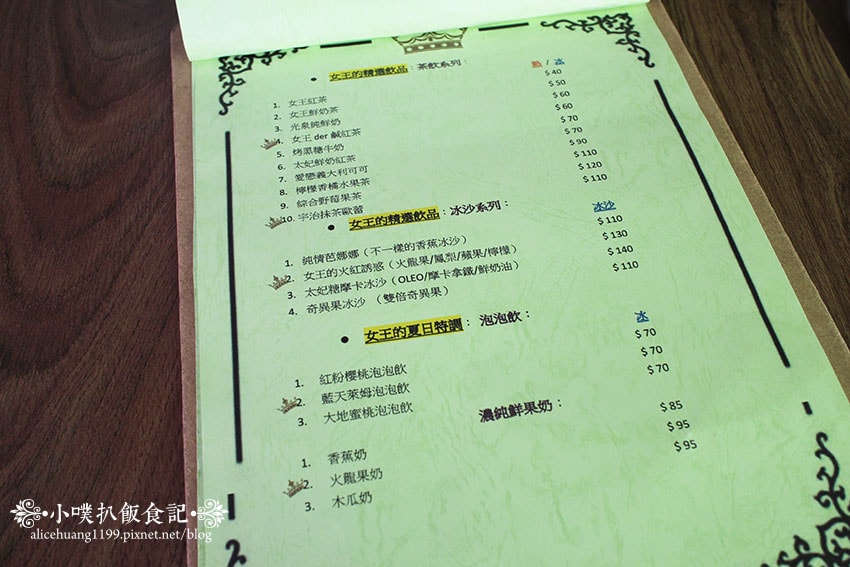 女王的精選飲品：茶飲系列： 熱 / 冰
1. 女王紅茶 $ 40
2. 女王鮮奶茶 $ 50
3. 光泉純鮮奶 $ 60
4. 女王 der 鹹紅茶 $ 60
5. 烤黑糖牛奶 $ 70
6. 太妃鮮奶紅茶 $ 70
7. 愛戀義大利可可 $ 90
8. 檸檬香橘水果茶 $ 110
9. 綜合野莓果茶 $ 120
10. 宇治抹茶歐蕾 $ 110
女王的精選飲品：冰沙系列： 冰沙
1. 純情芭娜娜（不一樣的香蕉冰沙） $ 110
2. 女王的火紅誘惑（火龍果/鳳梨/蘋果/檸檬） $ 130
3. 太妃糖摩卡冰沙（OLEO/摩卡拿鐵/鮮奶油） $ 140
4. 奇異果冰沙 （雙倍奇異果） $ 110
女王的夏日特調： 泡泡飲： 冰
1. 紅粉櫻桃泡泡飲 $ 70
2. 藍天萊姆泡泡飲 $ 70
3. 大地蜜桃泡泡飲 $ 70
濃純鮮果奶：
1. 香蕉奶 $ 85
2. 火龍果奶 $ 95
3. 木瓜奶 $ 95
2
小噗扒飯食記
alicehuang1199.pixnet.net/blog